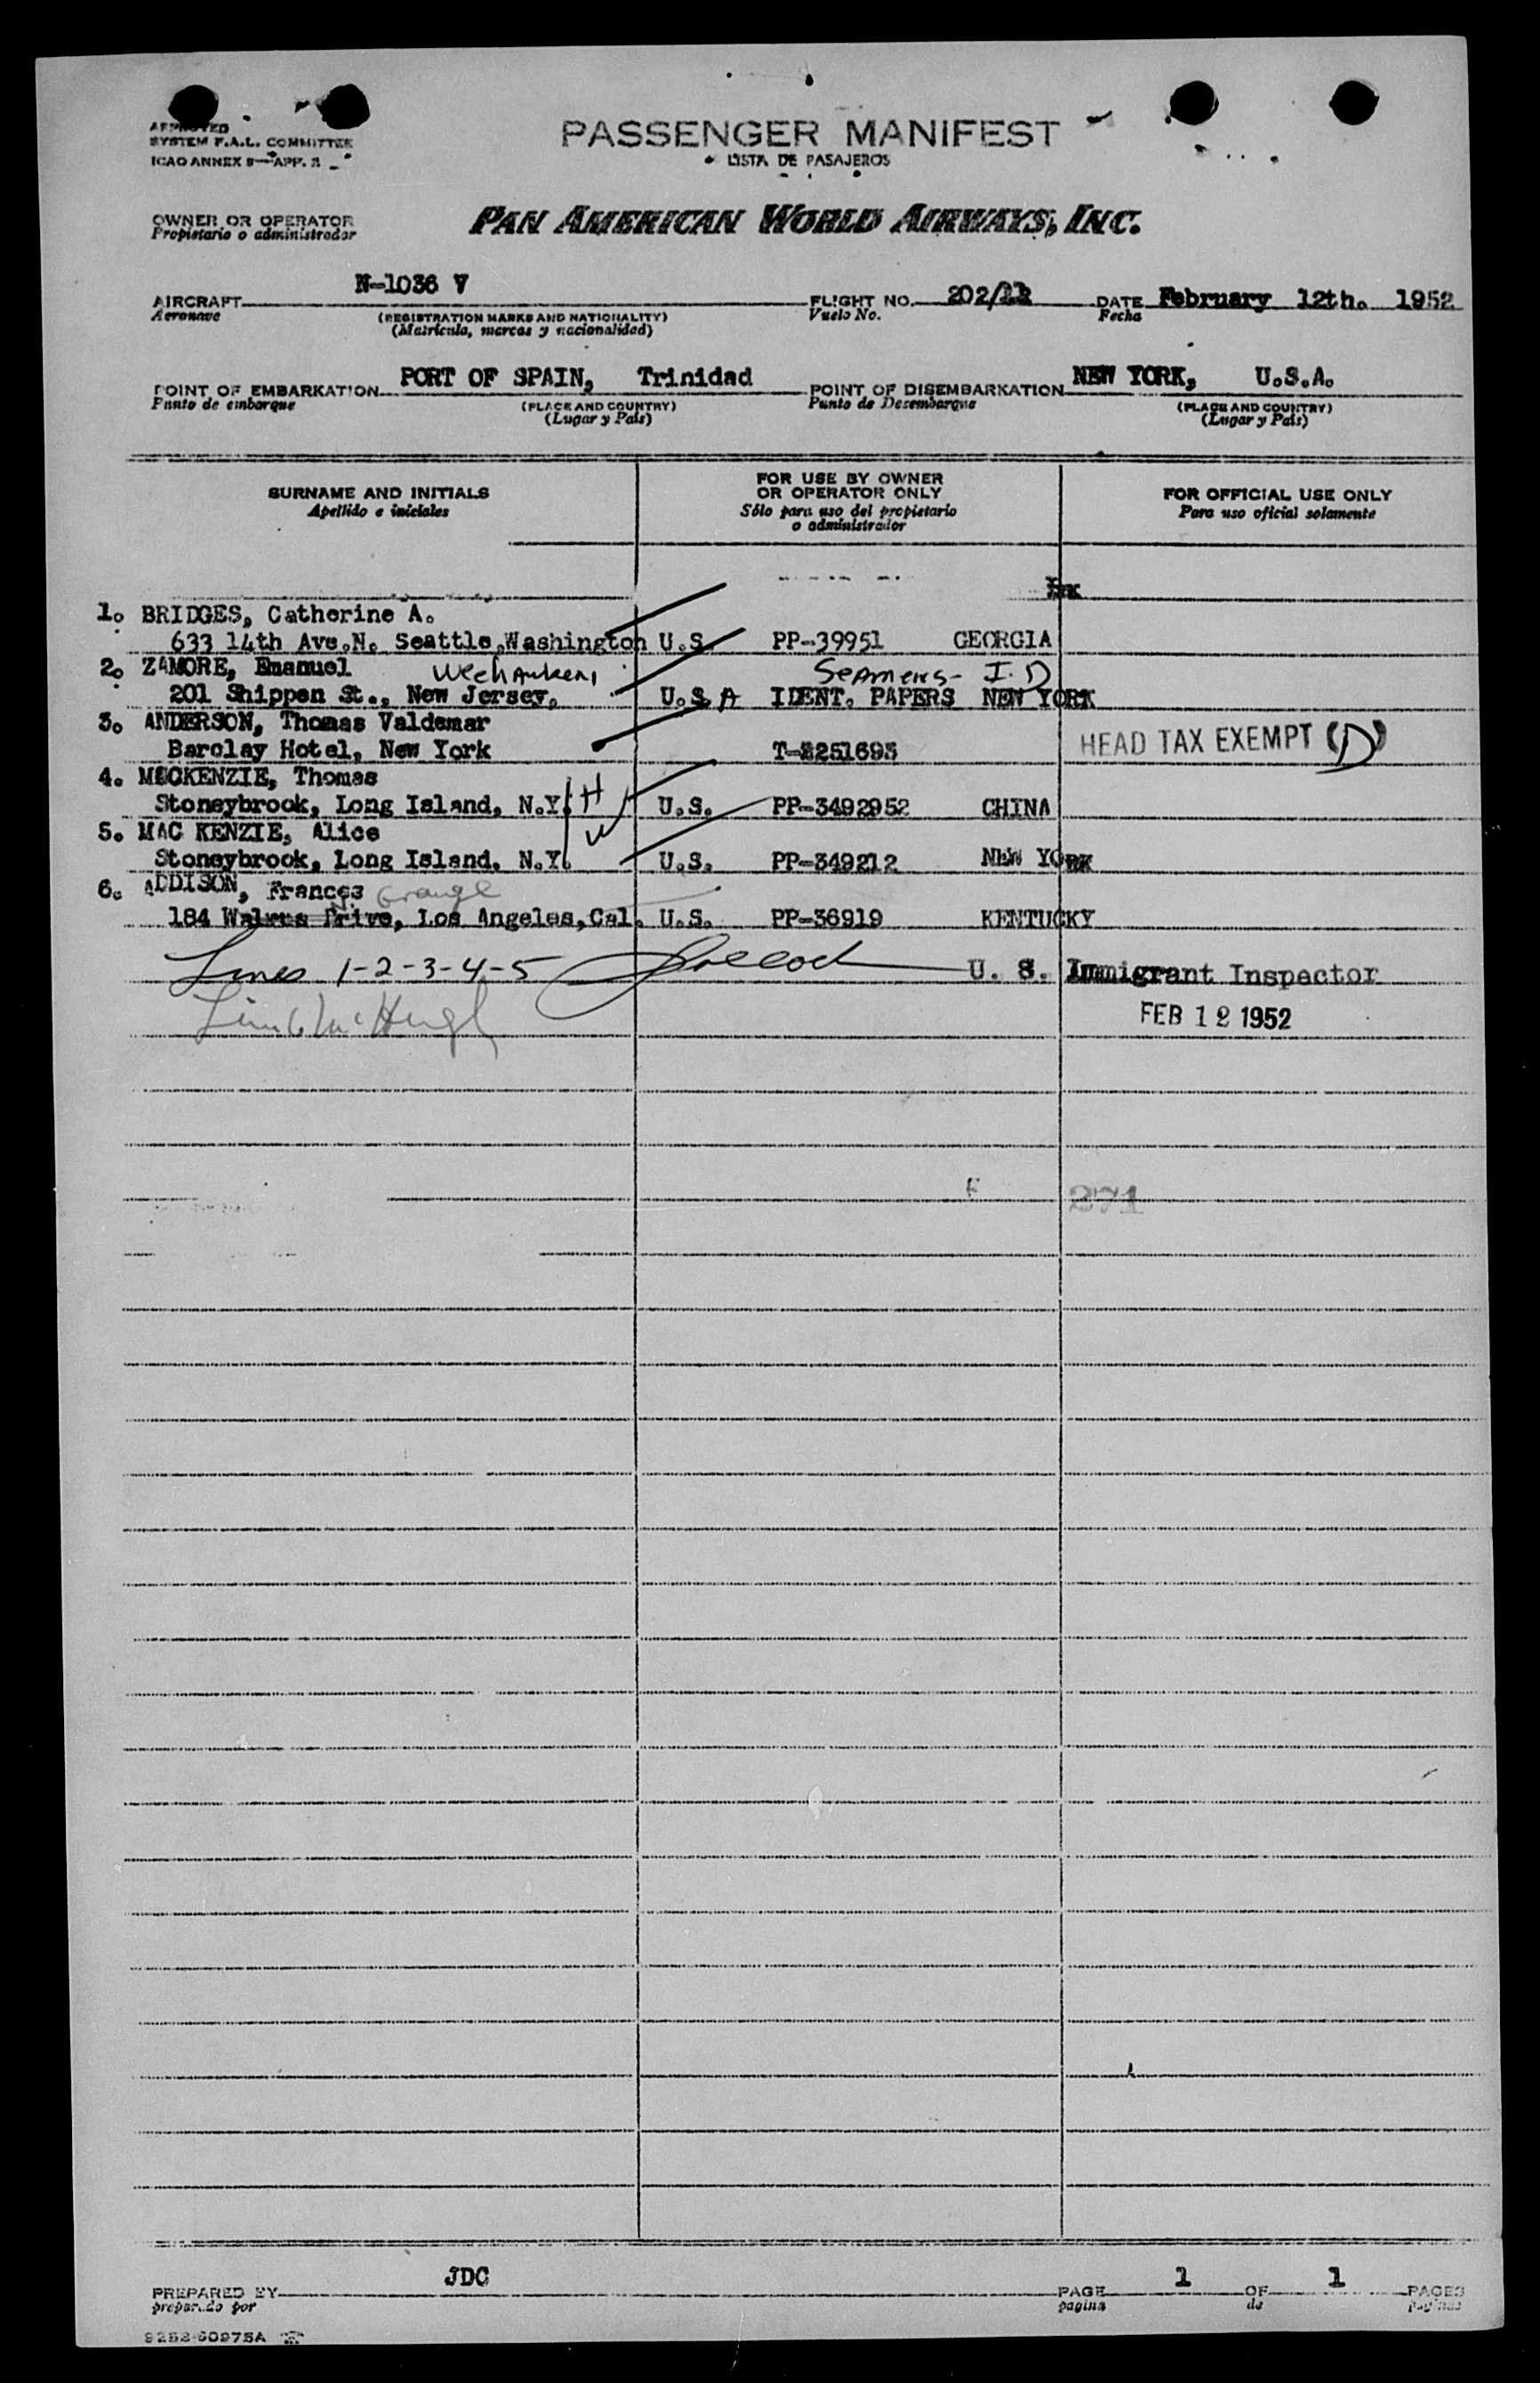 APPROVED
SYSTEM F.A.L. COMMITTEE
ICAO ANNEX 9—APP.
PASSENGER MANIFEST
LISTA DE PASAJEROS
OWNER OR OPERATOR
Propietario o administrador
PAN AMERICAN WORLD AIRWAYS, INC.
AIRCRAFT N-1036 V FLIGHT NO. 202/ DATE February 12th. 1952
Aeronave (REGISTRATION MARKS AND NATIONALITY) Vuelo No. Fecha
(Matrícula, marcas y nacionalidad)
POINT OF EMBARKATION PORT OF SPAIN, Trinidad POINT OF DISEMBARKATION NEW YORK, U.S.A.
Punto de embarque (PLACE AND COUNTRY) Punto de Desembarque (PLACE AND COUNTRY)
(Lugar y País) (Lugar y País)
SURNAME AND INITIALS FOR USE BY OWNER OR OPERATOR ONLY FOR OFFICIAL USE ONLY
Apellido e iniciales Sólo para uso del propietario o administrador Para uso oficial solamente
1. BRIDGES, Catherine A.
633 14th Ave.N. Seattle,Washington U.S. PP-39951 GEORGIA
2. ZAMORE, Emanuel Seamens- I.D
201 Shippen St., New Jersey, U.S.A IDENT. PAPERS NEW YORK
3. ANDERSON, Thomas Valdemar
Barclay Hotel, New York T-2251693 HEAD TAX EXEMPT (D)
4. MACKENZIE, Thomas
Stoneybrook, Long Island, N.Y. H U.S. PP-3492952 CHINA
5. MAC KENZIE, Alice W
Stoneybrook, Long Island, N.Y. U.S. PP-349212 NEW YORK
6. ADDISON, Frances Grange
184 Drive, Los Angeles,Cal. U.S. PP-36919 KENTUCKY
Lines 1-2-3-4-5 U. S. Immigrant Inspector
Line 6 McHugh FEB 12 1952
271
PREPARED BY JDC PAGE 1 OF 1 PAGES
preparado por pagina de paginas
9252-60975A